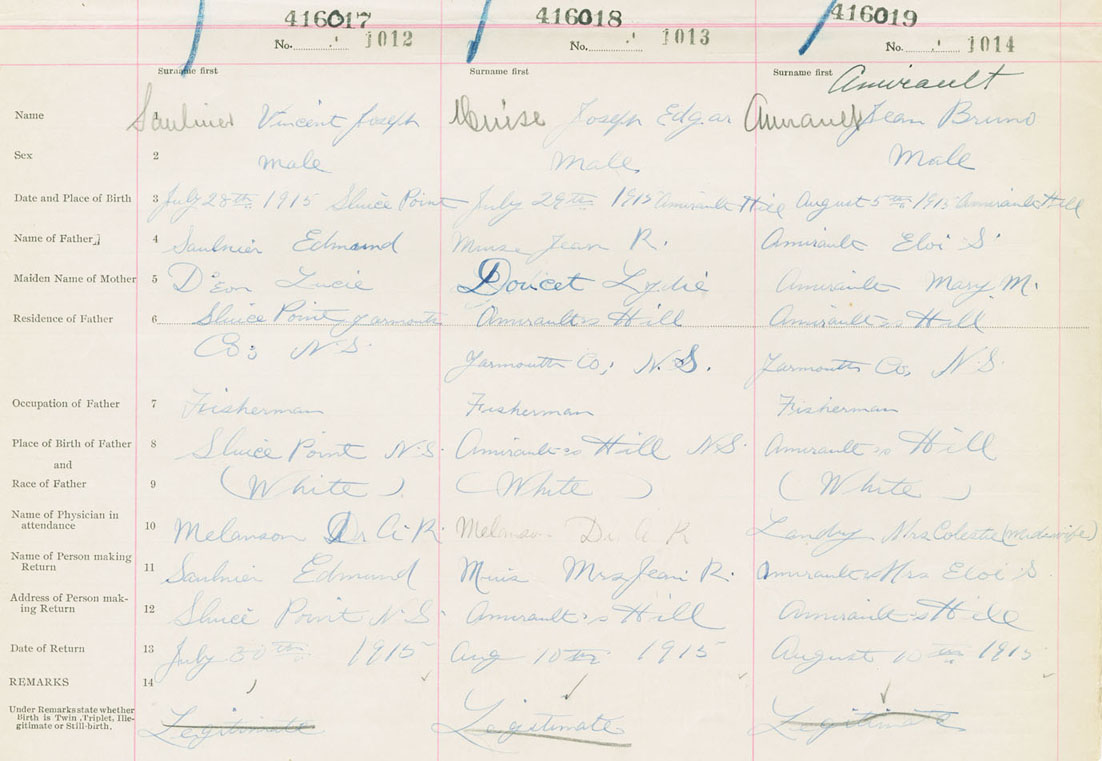 416017 416018 416019
No. 1012 No. 1013 No. 1014
Surname first Surname first Surname first Amirault
Name 1 Saulnier Vincent Joseph Muise Joseph Edgar Amirault Jean Bruno
Sex 2 male Male Male
Date and Place of Birth 3 July 28th 1915 Sluice Point July 29th 1915 Amirault Hill August 5th 1915 Amirault Hill
Name of Father 4 Saulnier Edmund Muise Jean R. Amirault Eloi S.
Maiden Name of Mother 5 D'Eon Lucie Doucet Lydie Amirault Mary M.
Residence of Father 6 Sluice Point Yarmouth Amirault's Hill Amirault's Hill
Co; N.S. Yarmouth Co; N.S. Yarmouth Co, N.S.
Occupation of Father 7 Fisherman Fisherman Fisherman
Place of Birth of Father 8 Sluice Point N.S. Amirault's Hill N.S. Amirault's Hill
and
Race of Father 9 (White) (White) (White)
Name of Physician in
attendance 10 Melanson Dr A. R. Melanson Dr. A R Landry Mrs Colestie (Midewife)
Name of Person making
Return 11 Saulnier Edmund Muis Mrs Jean R. Amirault Mrs Eloi S.
Address of Person mak-
ing Return 12 Sluice Point N.S. Amirault's Hill Amirault's Hill
Date of Return 13 July 30th 1915 Aug 10th 1915 August 10th 1915
REMARKS 14
Under Remarks state whether
Birth is Twin, Triplet, Ille-
gitimate or Still-birth. Legitimate Legitimate Legitimate